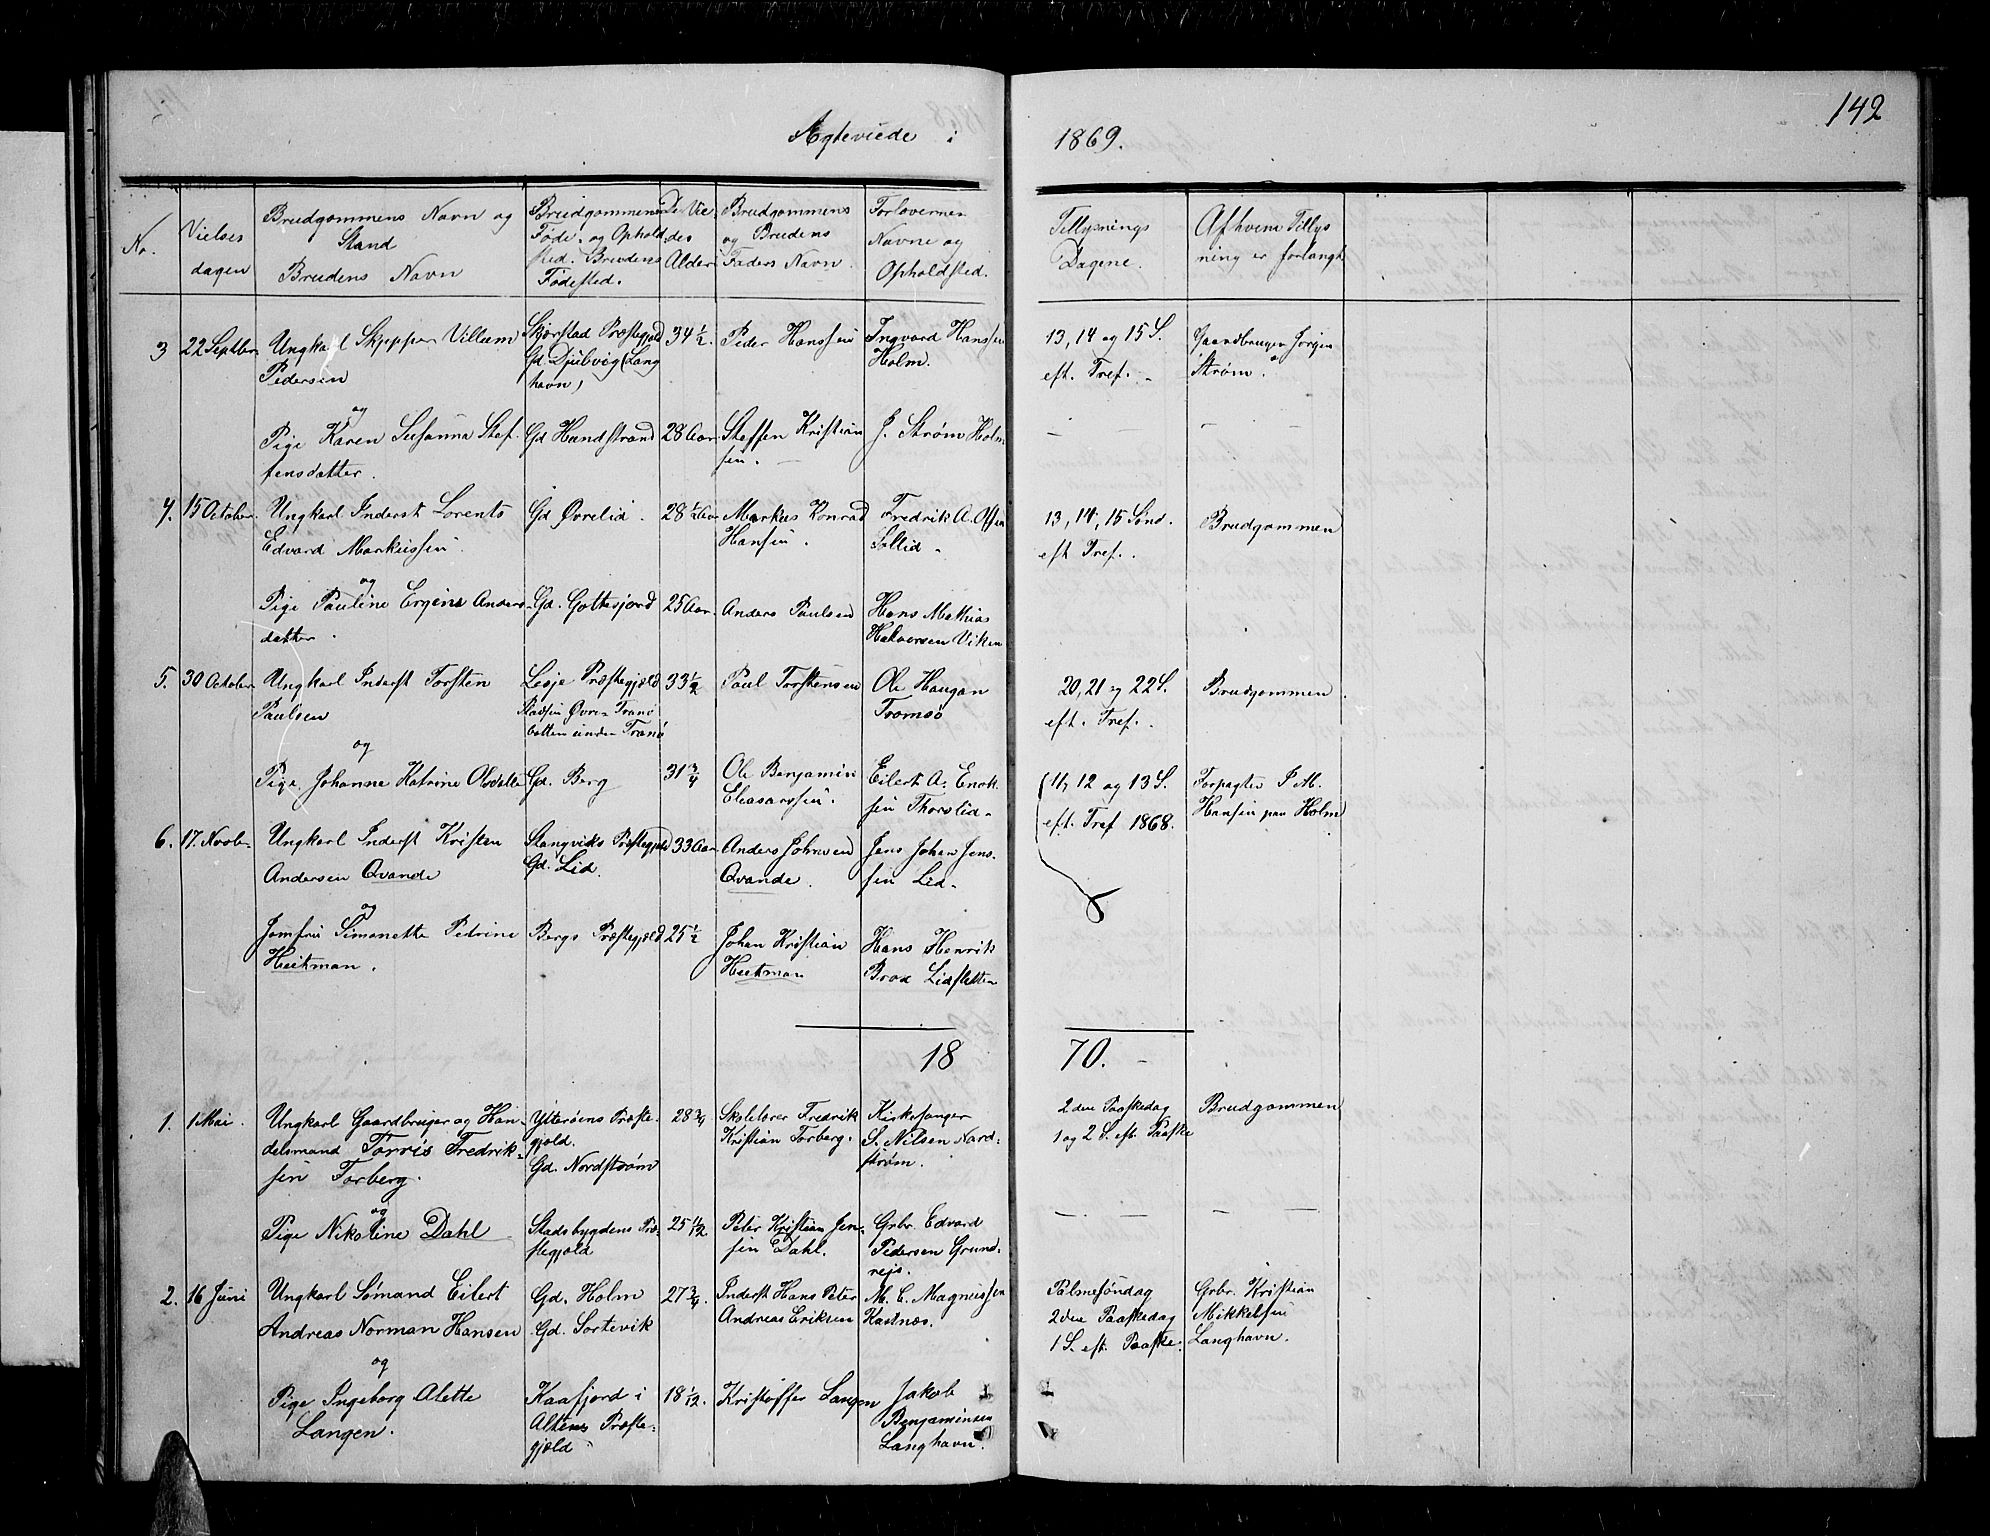 142
Ægteviede i 1869.
No.
Vielses
dagen
Brudgommens Navn og
Stand
Brudens Navn
Brudgommens
Føde- og Ophold
sted. Brudens
Fødested.
De Vie-
des
Alder
Brudgommens
og Brudens
Faders Navn.
Forlovernes
Navne og
Opholdsted.
Tillysnings
Dagene.
Af hvem Tillys
ning er forlangt
3
22 Septber
Ungkarl Skipper Villum
Pedersen
Skjerstad Præstegjeld
Gd. Djubvig (Lang
havn)
34 1/2.
Peder Hanssen
Ingvard Hanssen
Holm.
13, 14 og 15 S.
eft. Tref. -
Gaardbruger Jørgen
Strøm.
og
Pige Karen Susanna Stef-
fensdatter.
Gd Handstrand
28 Aar
Steffen Kristian
sen. -
J. Strøm Holm
4.
15 October
Ungkarl Inderst Lorents
Edvard Markussen
Gd Øvrelid.
28 1/2 Aar
Markus Konrad
Hansen.
Fredrik A. Olsen
Sollid -
13, 14, 15 Sønd.
eft. Tref.
Brudgommen
og
Pige Pauline Ergine Anders-
datter.
Gd. Gottesjord
25 Aar
Anders Paulsen
Hans Mathias
Halvorsen Viken
5.
30 October
Ungkarl Inderst Torsten
Paulsen
Lesje Præstegjæld
Stadsen Øvre Tranø
botten under Tranø
33 1/2
Paul Torstensen
Ole Haugan
Tromsø
20, 21 og 22 S.
eft. Tref.
Brudgommen.
og
Pige Johanne Katrine Olsdatter
Gd. Berg
31 3/4
Ole Benjamin
Eleasarssen.
Eilert A. Enok-
sen Thorslid -
11, 12 og 13 S.
eft. Tref 1868.
Forpagter P. M.
Hansen paa Holm
6.
17. Novbr
Ungkarl Inderst Kristen
Andersen Qvande
Stangviks Præstegjeld
Gd. Lid.
33 Aar
Anders Johnsen
Qvande.
Jens Johan Jens-
sen Lid -
og
Jomfru Simonette Pedrine
Heitman.
Bergs Præstegjæld
25 1/2
Johan Kristian
Heitman
Hans Henrik
Brox Lidsletten
1870.
1.
1 Mai.
Ungkarl Gaardbruger og Han-
delsmand Torris Fredrik-
sen Torberg.
Ytterøens Præste-
gjeld.
Gd. Nordstrøm
28 3/4
Skolelærer Fredrik
Kristian Torberg.
Kirkesanger
S. Nilsen Nord-
strøm.
2den Paaskedag
1 og 2 S. eft. Paaske
Brudgommen
og
Pige Nikoline Dahl
Stadsbygdens Præ-
stegjeld
25 11/12
Peter Kristian Jen-
sen Dahl.
Grbr. Edvard
Pedersen Grund-
reis.
2.
16 Juni
Ungkarl Sømand Eilert
Andreas Norman Hansen
Gd. Holm
Gd. Sortevik
27 3/4.
Inderst Hans Peter
Andreas Eriksen
M. C. Magnussen
Kastnæs.
Palmesøndag
2den Paaskedag
1 S. eft. Paaske.
Grbr. Kristian
Mikkelsen
Langhavn.
og
Pige Ingeborg Alette
Langen.
Kaafjord i
Altens Præste-
gjeld
18 1/12.
Kristoffer Langen
Jakob
Benjaminsen
Langhavn.